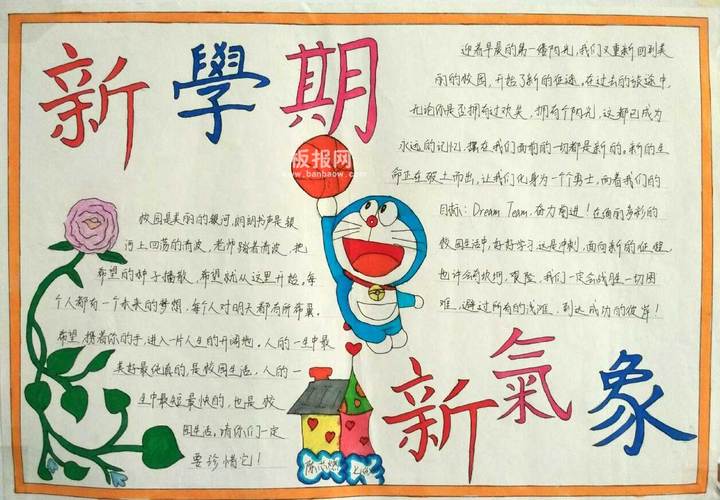 新學期
版报网
www.banbaow.com
迎着早晨的第一缕阳光,我们又重新回到美
丽的校园,开始了新的征途。在过去的旅途中,
无论你是否拥有过欢笑,拥有个阳光,这都已成为
永远的记忆。摆在我们面前的一切都是新的。新的生
命正在破土而出,让我们化身为一个勇士,向着我们的
目标:Dream Team.奋力前进!在绚丽多彩的
校园生活中,好好学习这是冲刺,面向新的征程
也许会有坎坷,艰险,我们一定会战胜一切困
难,避过所有的浅滩,到达成功的彼岸!
校园是美丽的银河,朗朗书声是银
河上回荡的清波,老师踏着清波,把
希望的种子播散,希望就从这里开始。每
个人都有一个未来的梦想,每个人对明天都有所希冀。
希望携着你的手,进入一片人生的开阔地。人的一生中最
美好最纯真的,是校园生活,人的一
生中最短最快的,也是校
园生活。请你们一定
要珍惜它!
新氣象